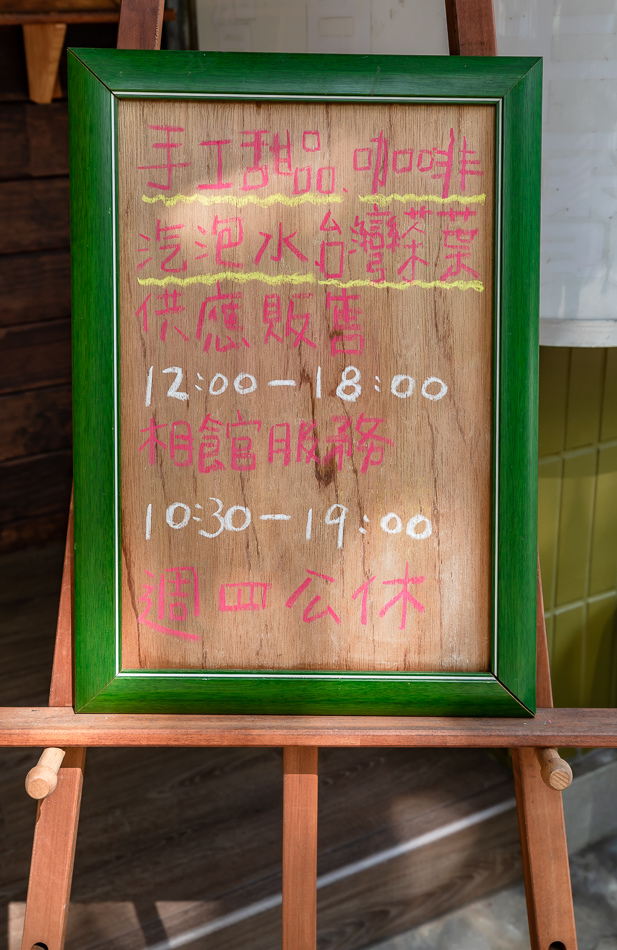 手工甜品、咖啡
汽泡水台灣茶葉
供應販售
12:00－18:00
相館服務
10:30－19:00
週四公休